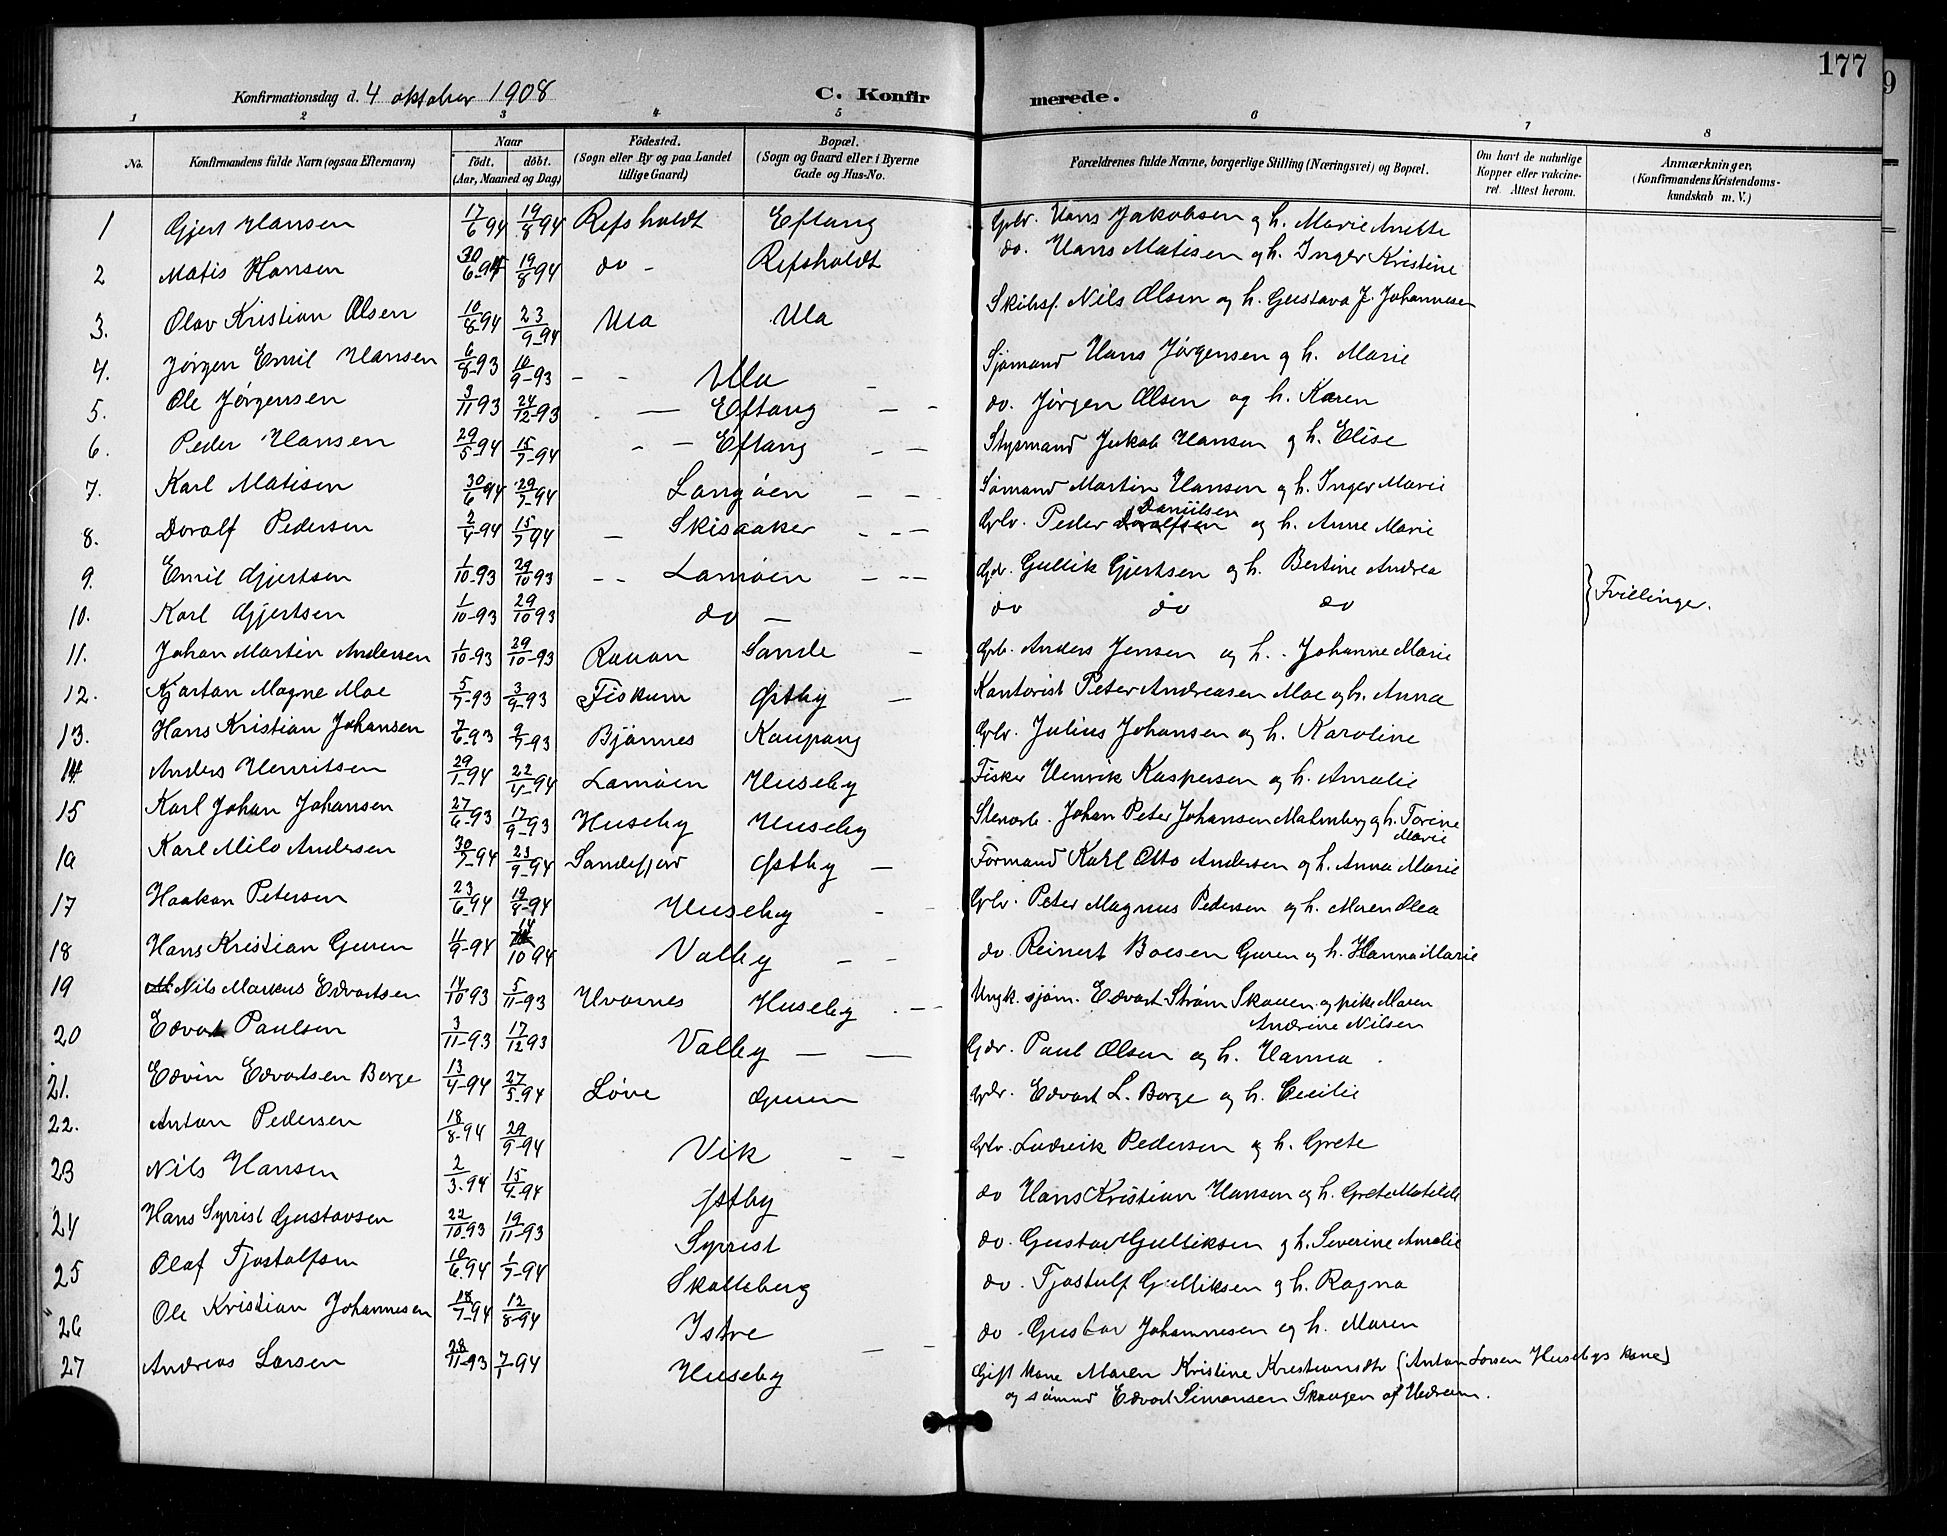 177
9
Konfirmationsdag d. 4 oktober 1908 C. Konfir merede.
1 2 3 4 5 6 7 8
No. Konfirmandens fulde Navn (ogsaa Efternavn) Naar født. døbt. (Aar, Maaned og Dag) Fødested. (Sogn eller By og paa Landet tillige Gaard) Bopæl. (Sogn og Gaard eller i Byerne Gade og Hus-No. Forældrenes fulde Navne, borgerlige Stilling (Næringsvei) og Bopæl. Om havt de naturlige Kopper eller vakcineret Attest herom. Anmærkninger, (Konfirmandens Kristendomskundskab m. V.)
1 Gjert Hansen 17/6 94 19/8 94 Refsholdt Eftang Grbr. Hans Jakobsen og h. Marie Anette
2 Matis Hansen 30/6-94 19/8 94 do - Refsholdt do. Hans Matisen og h. Inger Kristine
3. Olav Kristian Olsen 10/8-94 23/9-94 Ula Ula Skibsf. Nils Olsen og h. Gustava J. Johannesen
4. Jørgen Emil Hansen 6/8-93 10/9-93 - - Ula - Sjømand Hans Jørgensen og h. Marie
5. Ole Jørgensen 3/11 93 24/12-93 - Eftang - - do. Jørgen Olsen og h. Karen
6. Peder Hansen 29/5-94 15/7-94 - - Eftang - - Stysmand Jakob Hansen og h. Elise
7. Karl Matisen 30/6 94 29/7-94 Langøen - - Sømand Martin Hansen og h. Inger Marie
8. Doralf Pedersen 2/4-94 15/7 94 - Skisaaker - - - Grbr. Peder Doralfsen Daniilsen og h. Anne Marie
9. Emil Gjertsen 1/10-93 29/10 93 - - Lamøen - - - Gbr. Gullik Gjertsen og h. Bertine Andrea
10. Karl Gjertsen 1/10-93 29/10 93 do - do do do } Tvillinge.
11. Johan Martin Andersen 1/10-93 29/10-93 Rauan Sande - Grb. Anders Jensen og h. Johanne Marie
12. Kjartan Magne Moe 5/7-93 3/9-93 Fiskum Østby - Kontorist Peter Andreasen Moe og h. Anna
13. Hans Kristian Johansen 7/6-93 9/7-93 Bjønnes Kaupang Grbr. Julius Johansen og h. Karoline
14 Anders Henriksen 29/1-94 22/4-94 Lamøen Huseby Fisker Henrik Kaspersen og h. Amalie
15 Karl Johan Johansen 27/6-93 17/9-93 Huseby Huseby Stenarb. Johan Peter Johansen Malmberg og h. Torine Marie
16 Karl Milo Andersen 30/7-94 23/9-94 Sandefjord Østby - Formand Karl Otto Andersen og h. Anna Marie
17 Haakon Petersen 23/6-94 19/8-94 Huseby - - Grbr. Peter Magnus Pedersen og h. Maren Olea
18 Hans Kristian Guren 11/9-94 14/10 94 Valby - - do. Reinert Boesen Guren og h. Hanna Marie
19 Nils Markus Edvartsen 14/10 93 5/11-93 Hvarnes Huseby - - Ungk. sjøm. Edvart Strøm Skauen og pike Maren Andrine Nilsen
20 Edvart Paulsen 3/11-93 17/12 93 Valby - - Gbr. Paul Olsen og h. Hanna.
21. Edvin Edvartsen Borge 13/4-94 27/5-94 Løve Guren Gbr. Edvart L. Borge og h. Cecilie
22. Anton Pedersen 18/8-94 29/9-94 Vik - - Grbr. Ludvik Pedersen og h. Grete
23 Nils Hansen 2/3-94 15/4-94 Østby do Hans Kristian Hansen og h. Grete Matilde
24 Hans Syrrist Gustavsen 22/10-93 19/11-93 Syrrist do. Gustav Gulliksen og h. Severine Amalie
25 Olaf Tjostolfsen 10/6-94 1/7-94 Skalleberg do. Tjostulf Gulliksen og h. Ragna
26 Ole Kristian Johannesen 18/7-94 12/8-94 Istre do. Gustav Johannesen og h. Maren
27 Andreas Larsen 28/11-93 7/1-94 Huseby - - Gift kone Maren Kristine Kristiansdtr (Anton Larsen Husebys kone)
og sømnd Edvart Simonsen Skaugen af Hedrum.